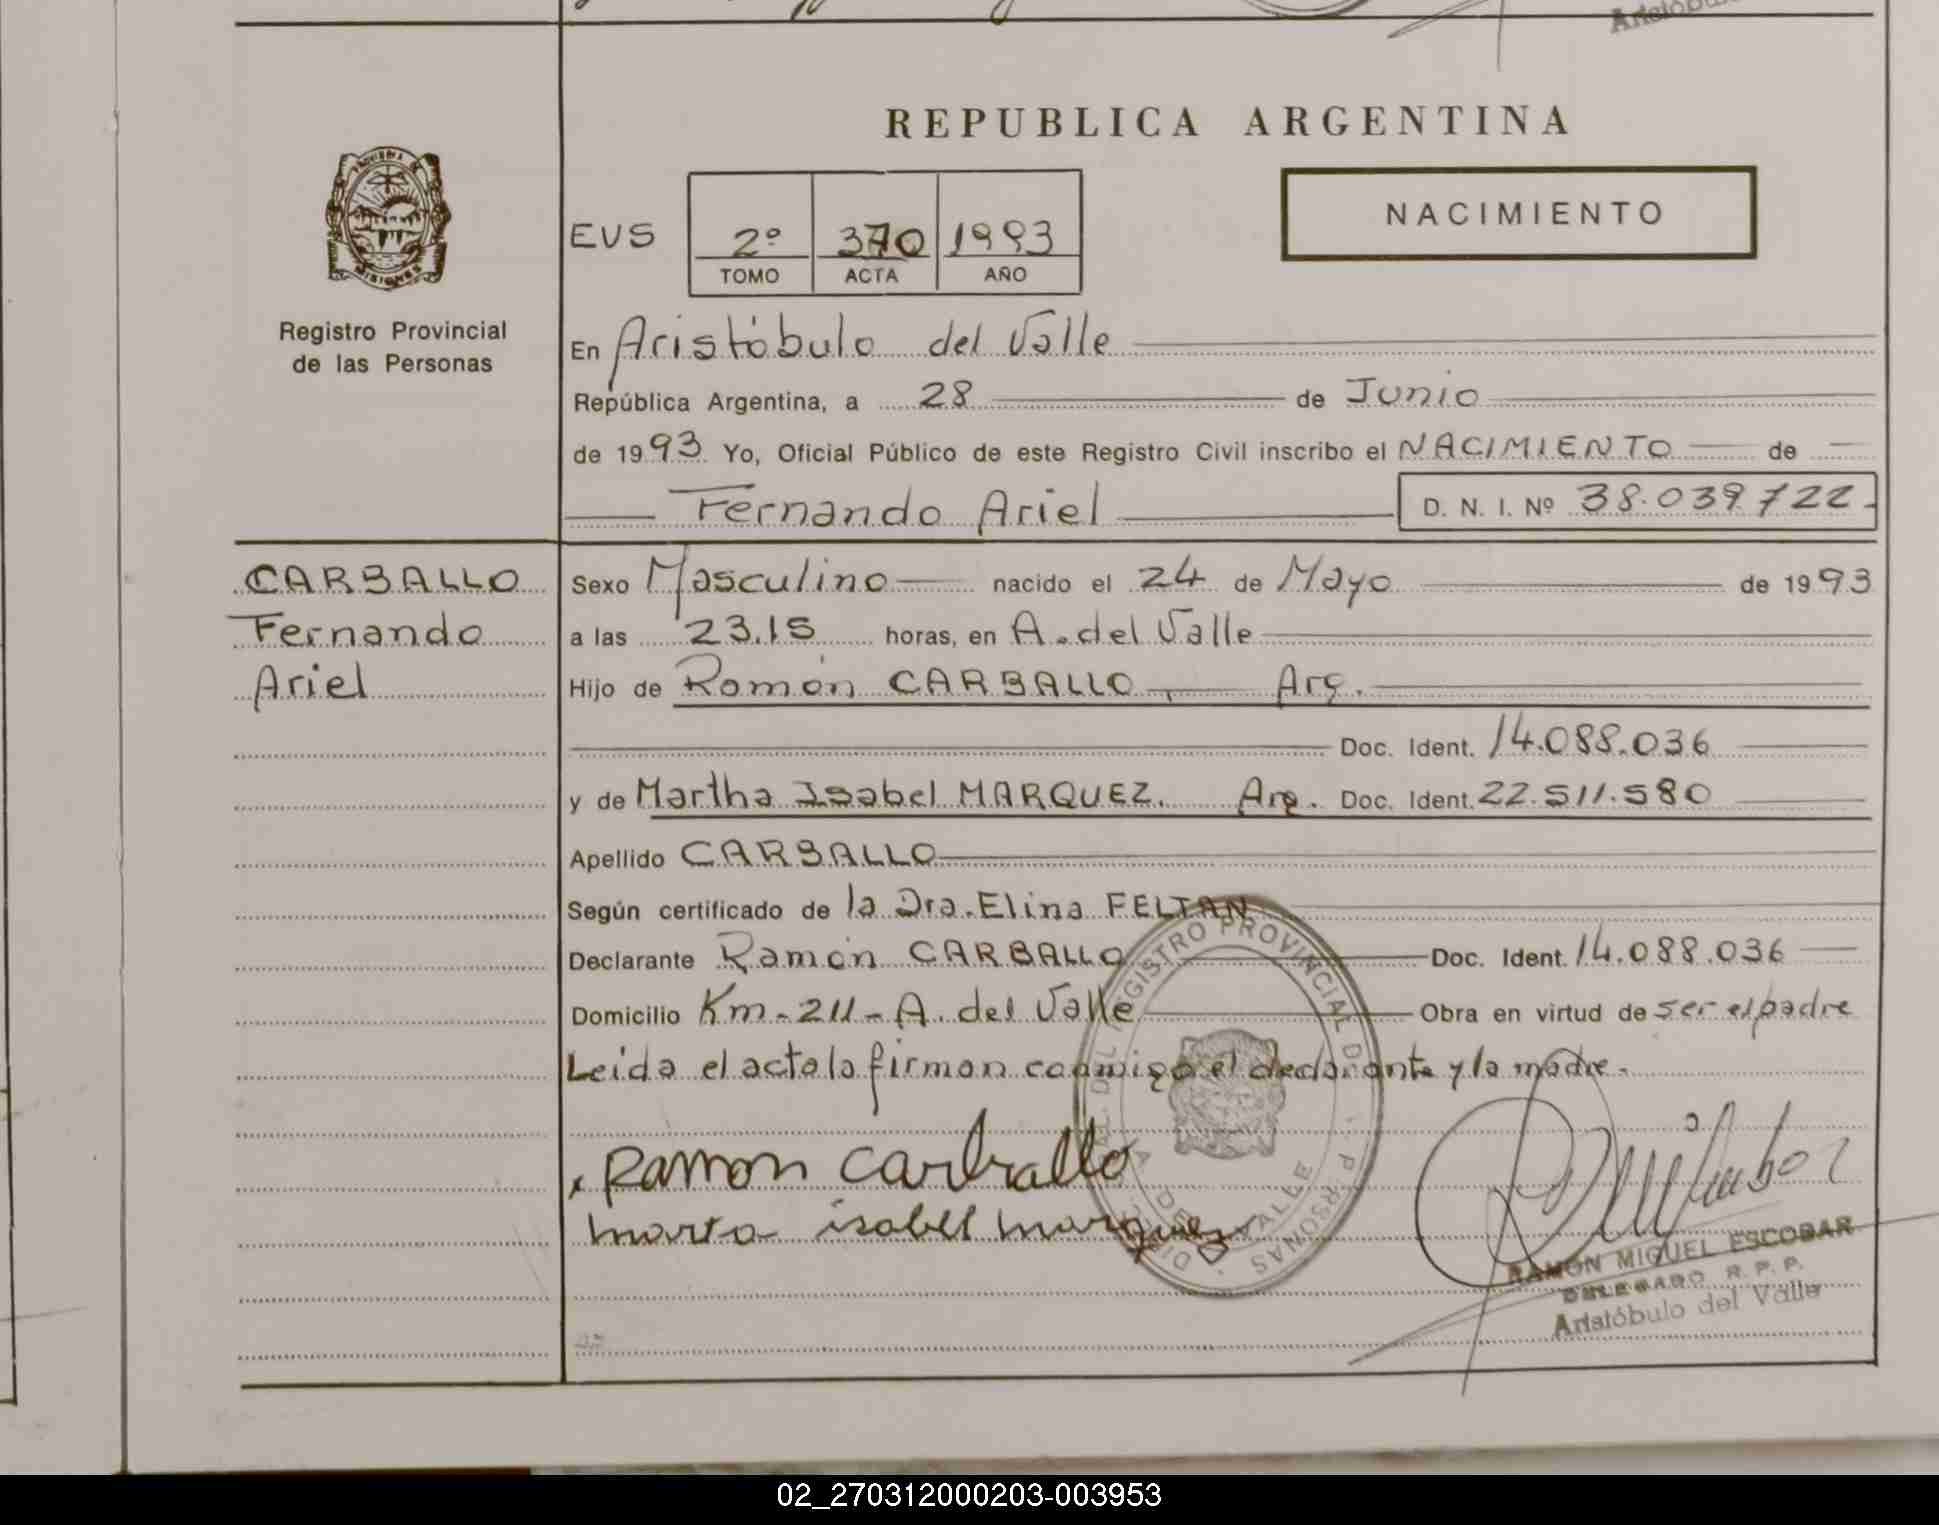 REPUBLICA ARGENTINA
NACIMIENTO
EVS 2º 370 1993
TOMO ACTA AÑO
PROVINCIA DE MISIONES
Registro Provincial
de las Personas
En Aristóbulo del Valle
República Argentina, a 28 de Junio
de 1993 Yo, Oficial Público de este Registro Civil inscribo el NACIMIENTO de
Fernando Ariel D. N. I. Nº 38.039.722.
CARBALLO
Fernando
Ariel
Sexo Masculino nacido el 24 de Mayo de 1993
a las 23.15 horas, en A. del Valle
Hijo de Ramón CARBALLO, Arg.
Doc. Ident. 14.088.036
y de Martha Isabel MARQUEZ. Arg. Doc. Ident. 22.511.580
Apellido CARBALLO
Según certificado de la Dra. Elina FELTAN
Declarante Ramón CARBALLO Doc. Ident. 14.088.036
Domicilio Km-211-A. del Valle Obra en virtud de ser el padre
Leida el acta la firman conmigo el declarante y la madre.
x Ramon Carballo
marta isabel marquez
RAMON MIGUEL ESCOBAR
DELEGADO R. P. P.
Aristóbulo del Valle
02_270312000203-003953